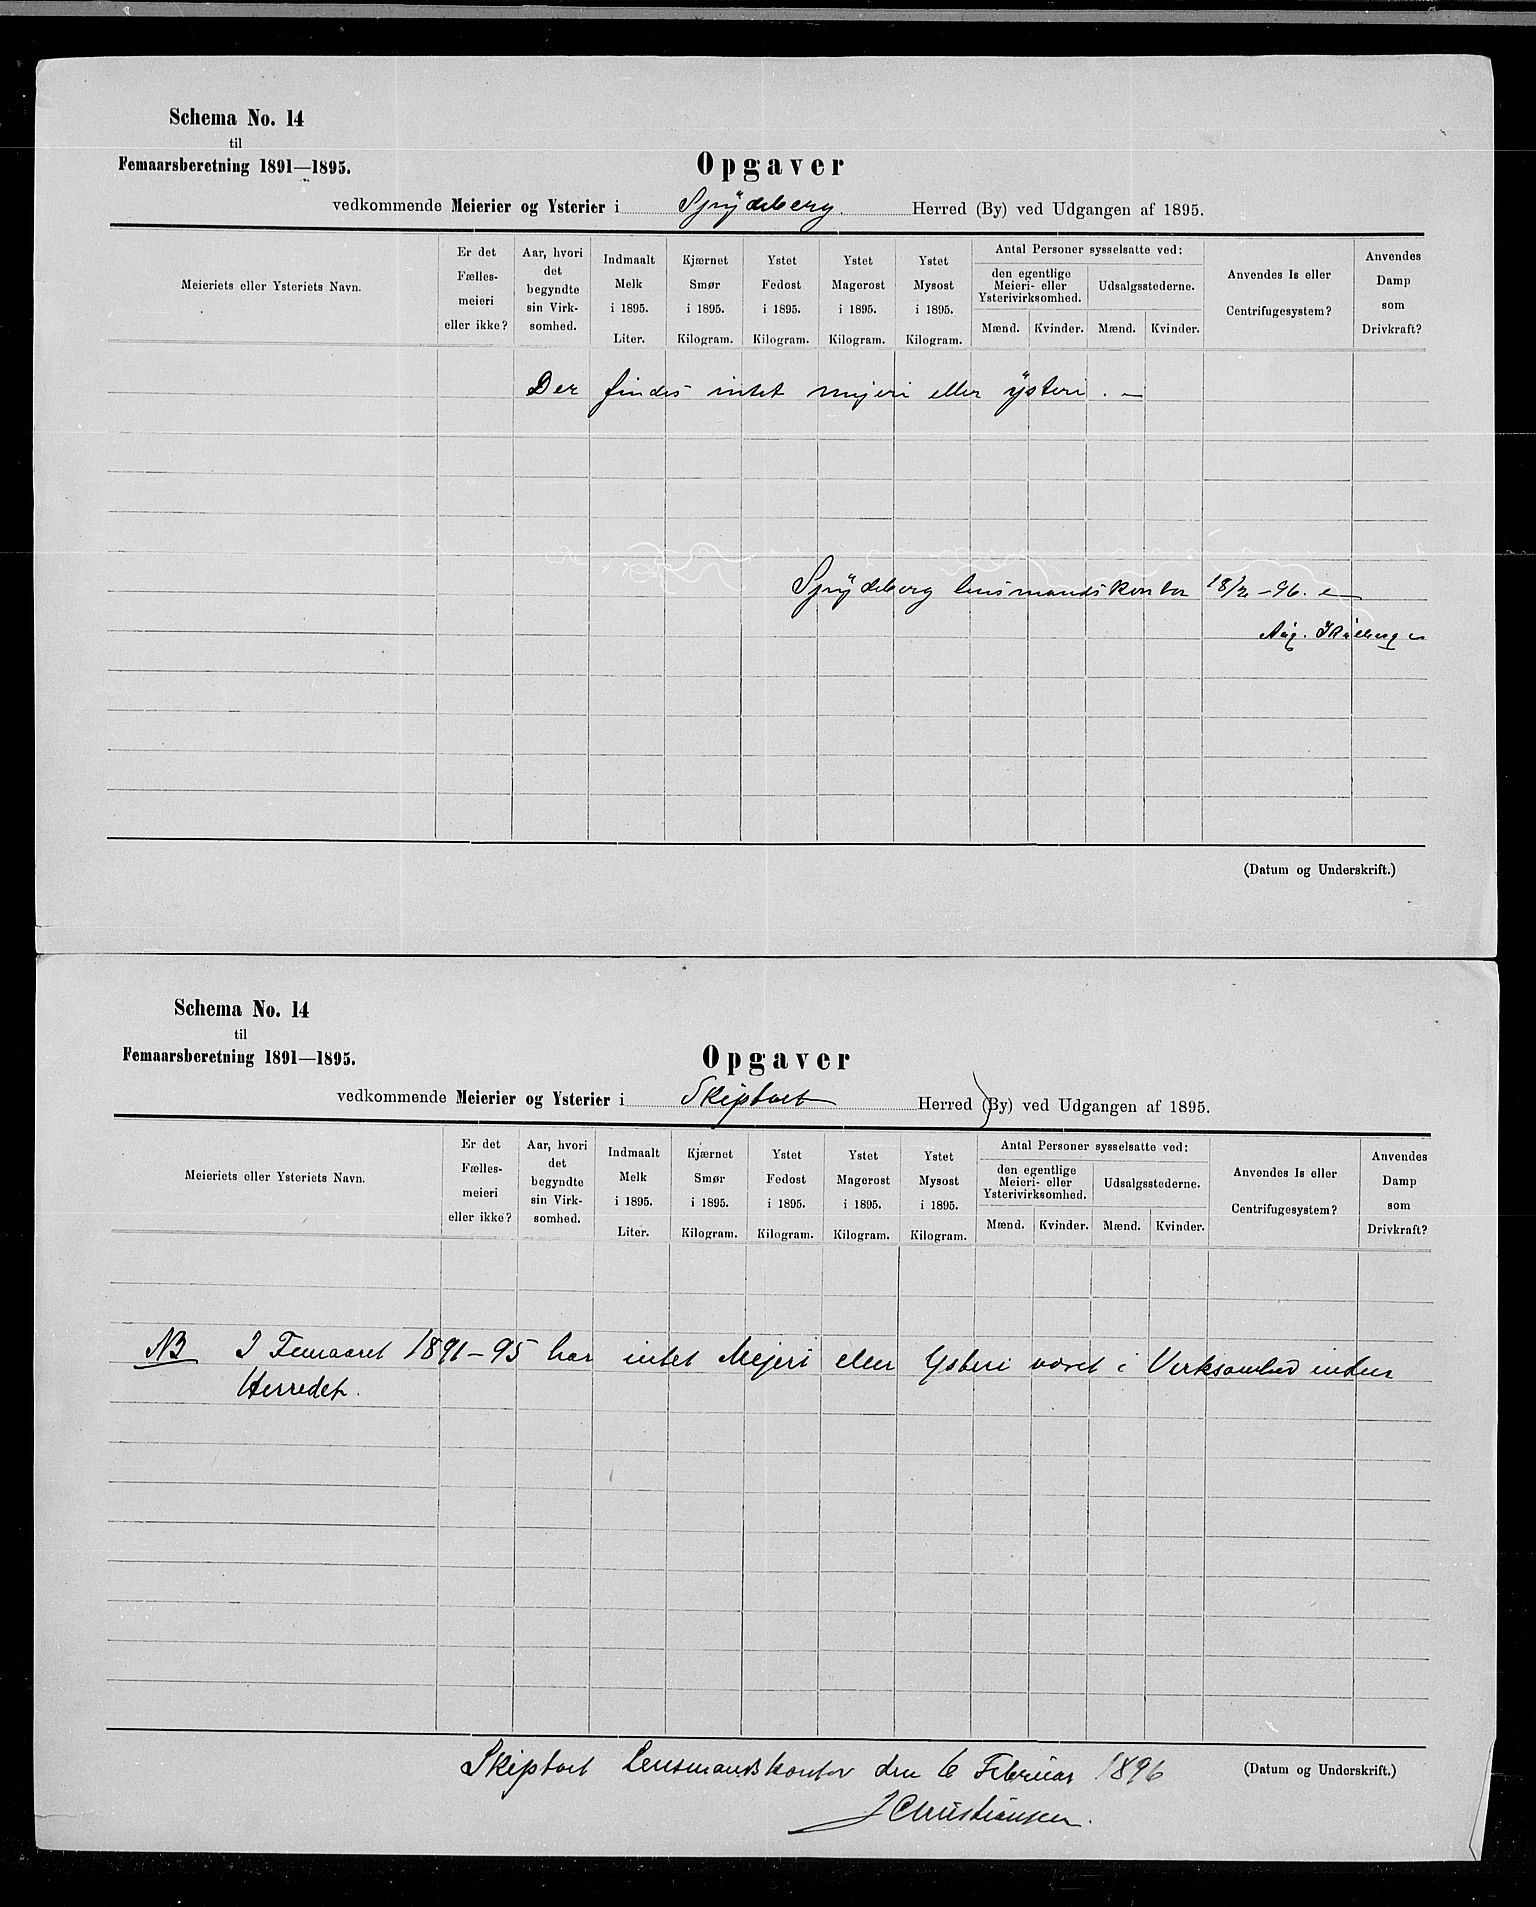 Schema No. 14
til
Femaarsberetning 1891—1895.
Opgaver
vedkommende Meierier og Ysterier i Spÿdeberg. Herred (By) ved Udgangen af 1895.
Meieriets eller Ysteriets Navn.
Er det Fælles- meieri eller ikke?
Aar, hvori det begyndte sin Virk- somhed.
Indmaalt Melk i 1895. Liter.
Kjærnet Smør i 1895. Kilogram.
Ystet Fedost i 1895. Kilogram.
Ystet Magerost i 1895. Kilogram.
Ystet Mysost i 1895. Kilogram.
Antal Personer sysselsatte ved:
den egentlige Meieri- eller Ysterivirksomhed.
Udsalgsstederne.
Mænd. Kvinder. Mænd. Kvinder.
Anvendes Is eller Centrifugesystem?
Anvendes Damp som Drivkraft?
Der findes intet mejeri eller ÿsteri. —
Spÿdeberg lensmandskontor 18/2 – 96. —
Aug.
(Datum og Underskrift.)
Schema No. 14
til
Femaarsberetning 1891—1895.
Opgaver
vedkommende Meierier og Ysterier i Skiptvet Herred (By) ved Udgangen af 1895.
Meieriets eller Ysteriets Navn.
Er det Fælles- meieri eller ikke?
Aar, hvori det begyndte sin Virk- somhed.
Indmaalt Melk i 1895. Liter.
Kjærnet Smør i 1895. Kilogram.
Ystet Fedost i 1895. Kilogram.
Ystet Magerost i 1895. Kilogram.
Ystet Mysost i 1895. Kilogram.
Antal Personer sysselsatte ved:
den egentlige Meieri- eller Ysterivirksomhed.
Udsalgsstederne.
Mænd. Kvinder. Mænd. Kvinder.
Anvendes Is eller Centrifugesystem?
Anvendes Damp som Drivkraft?
NB I Femaaret 1891–95 har intet Mejeri eller Ysteri været i Virksomhed inden
Herredet.
Skiptvet Lensmandskontor den 6 Februar 1896
(Datum og Underskrift.)
J Christiansen.